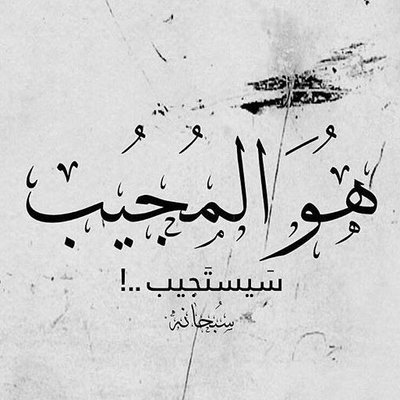 هُوَ المُجيُب
سَيستَجيب ..!
سُبحانه